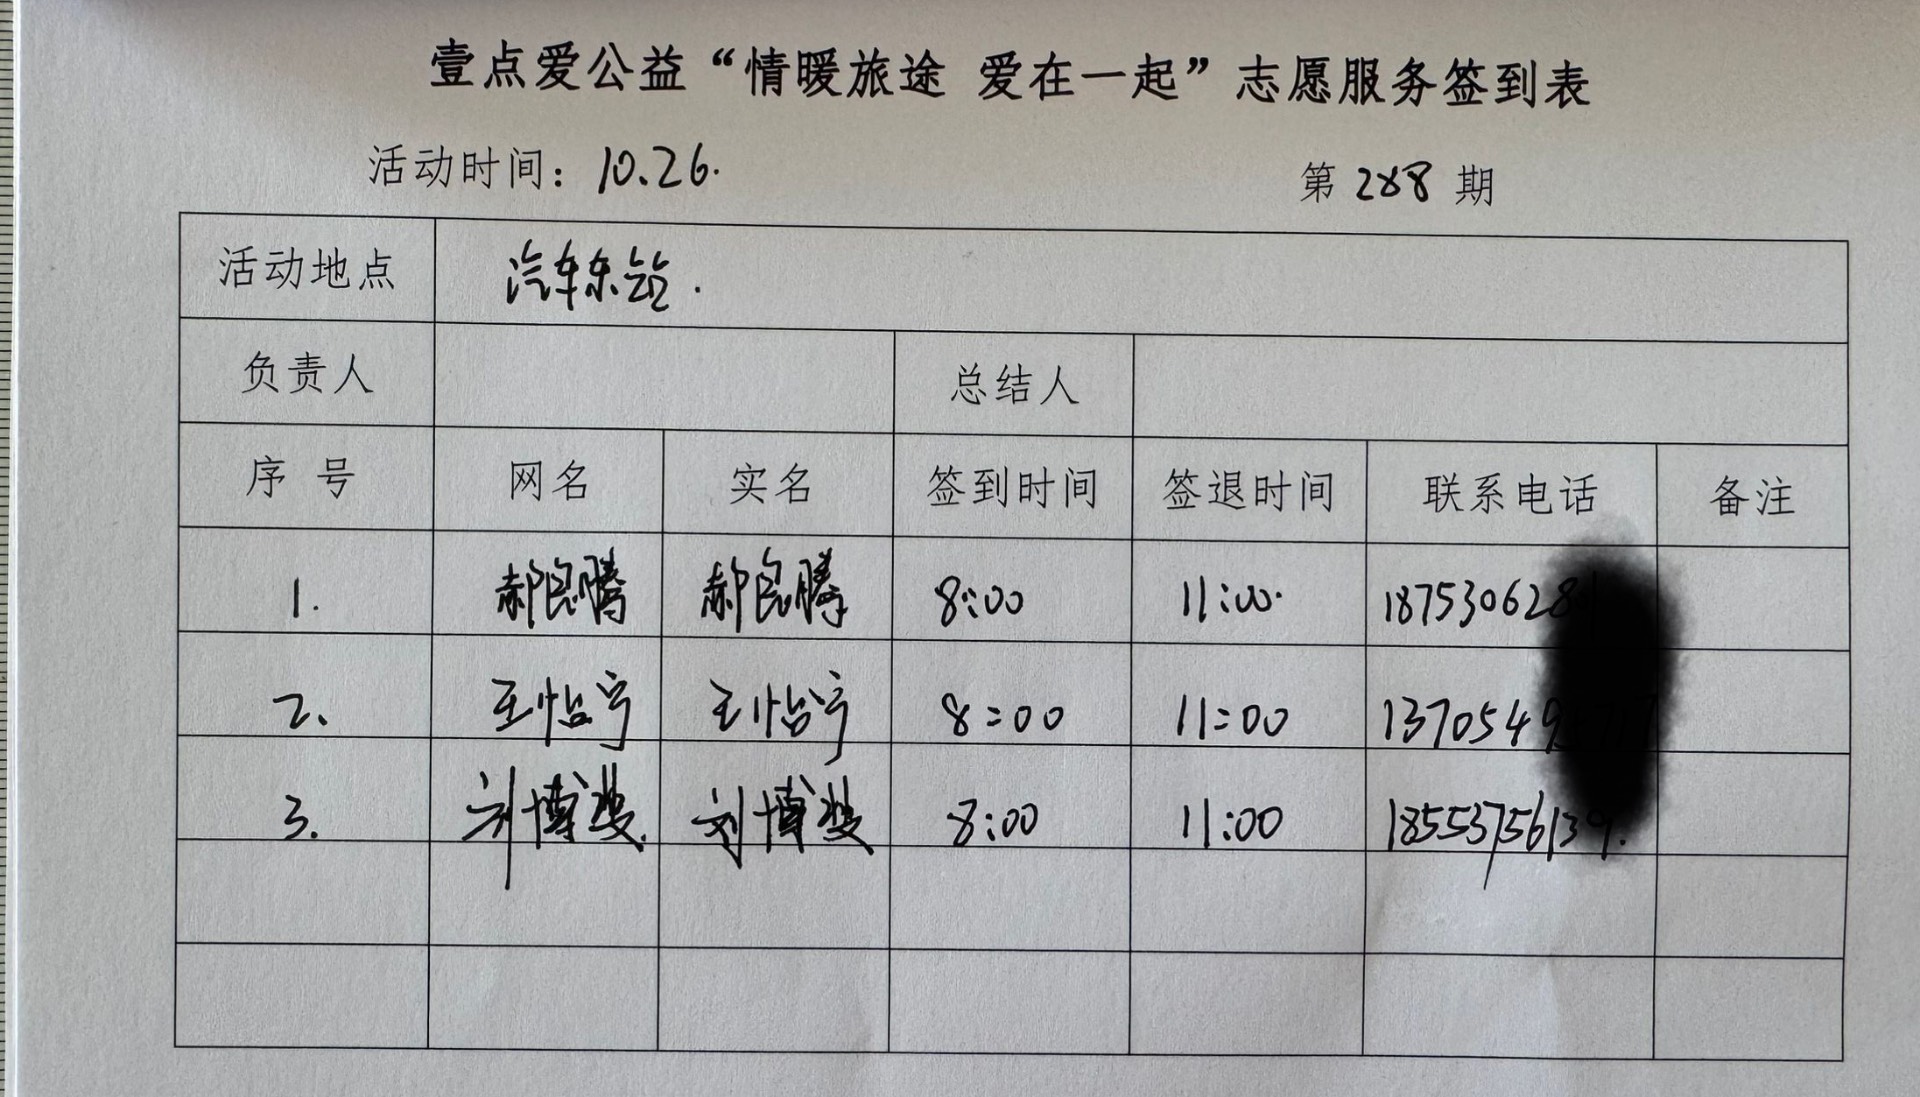 壹点爱公益“情暖旅途 爱在一起”志愿服务签到表
活动时间：10.26. 第 288 期
活动地点 汽车东站.
负责人 总结人
序 号 网名 实名 签到时间 签退时间 联系电话 备注
1. 郝良腾 郝良腾 8:00 11:00.
2. 王怡宁 王怡宁 8:00 11:00
3. 刘博 刘博 8:00 11:00